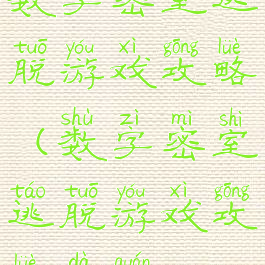 数字密室逃
tuō yóu xì gōng lüè
脱游戏攻略
shù zì mì shì
(数字密室
táo tuō yóu xì gōng
逃脱游戏攻
lüè dà quán